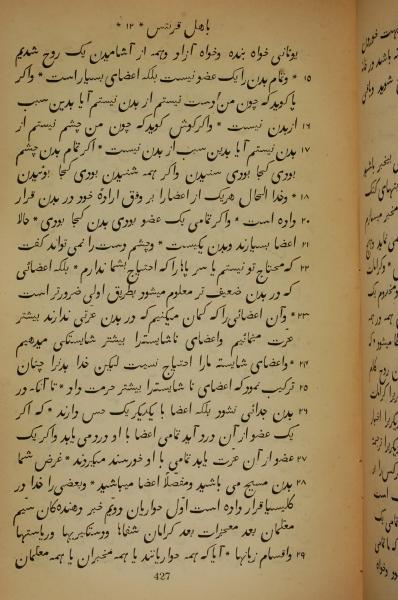 باهل قرنتس * ۱۲ *
یونانی خواه بنده وخواه آزاد وهمه از آشامیدن یک روح شدیم
۱۵ * وتمام بدن را یک عضو نیست بلکه اعضای بسیار است * واکر
پا کوید که چون من دست نیستم از بدن نیستم آیا بدین سبب
۱۶ از بدن نیست * واکر کوش کوید که چون من چشم نیستم از
۱۷ بدن نیستم آیا بدین سبب از بدن نیست * اکر تمام بدن چشم
بودی کجا بودی شنیدن واکر همه شنیدن بودی کجا بوئیدن
۱۸ * وخدا الحال هریک از اعضا را بر وفق ارادهٔ خود در بدن قرار
۲۰ داده است * واکر تمامی یک عضو بودی بدن کجا بودی * حالا
۲۱ اعضا بسیارند وبدن یکیست * وچشم دست را نمی تواند کفت
۲۲ که محتاج تو نیستم یا سر پاها را که احتیاج بشما ندارم * بلکه اعضائی
که در بدن ضعیف تر معلوم میشود بطریق اولی ضرورتر است
۲۳ * وآن اعضائی را که کمان میکنیم که در بدن عزتی ندارند بیشتر
عزت مینمائیم واعضای ناشایسترا بیشتر شایستکی میدهیم
۲۴ * واعضای شایسته ما را احتیاج نیست لیکن خدا بدنرا چنان
۲۵ ترکیب نمود که اعضای نا شایسترا بیشتر حرمت داد * تا آنکه در
۲۶ بدن جدائی نشود بلکه اعضا با یکدیکر یک حس دارند * که اکر
یک عضو از آن درد آید تمامی اعضا با او درد می یابد واکر یک
۲۷ عضو از آن عزت یابد تمامی با او خورسند میکردند * غرض شما
۲۸ بدن مسیح می باشید ومفصلاً اعضا میباشید * وبعضی را خدا در
کلیسیا قرار داده است اول حواریان دویم خبر دهنده‌کان سیّم
معلمان بعد معجزات بعد کرامات شفاها ودستکیریها وریاستها
۲۹ واقسام زبانها * آیا که همه حواریانند یا همه مخبران یا همه معلمان
427